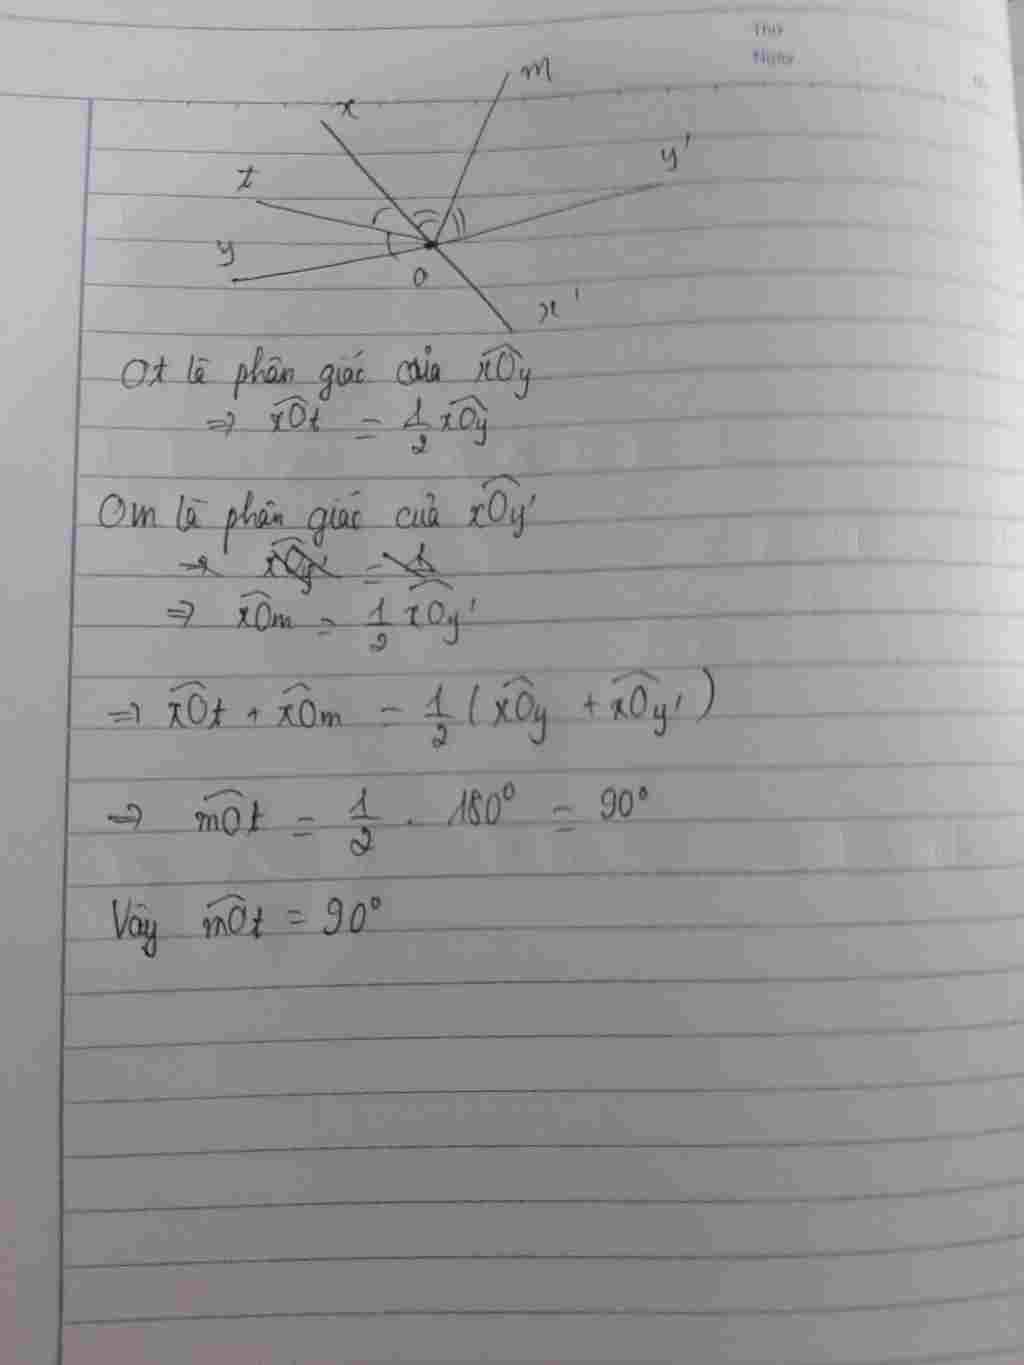 Thứ
Ngày
m
x
y'
t
y
O
x'
Ot là phân giác của xOy
=> xOt = 1/2 xOy
Om là phân giác của xOy'
=> xOm = 1/2 xOy'
=> xOt + xOm = 1/2 (xOy + xOy')
=> mOt = 1/2 . 180° = 90°
Vậy mOt = 90°